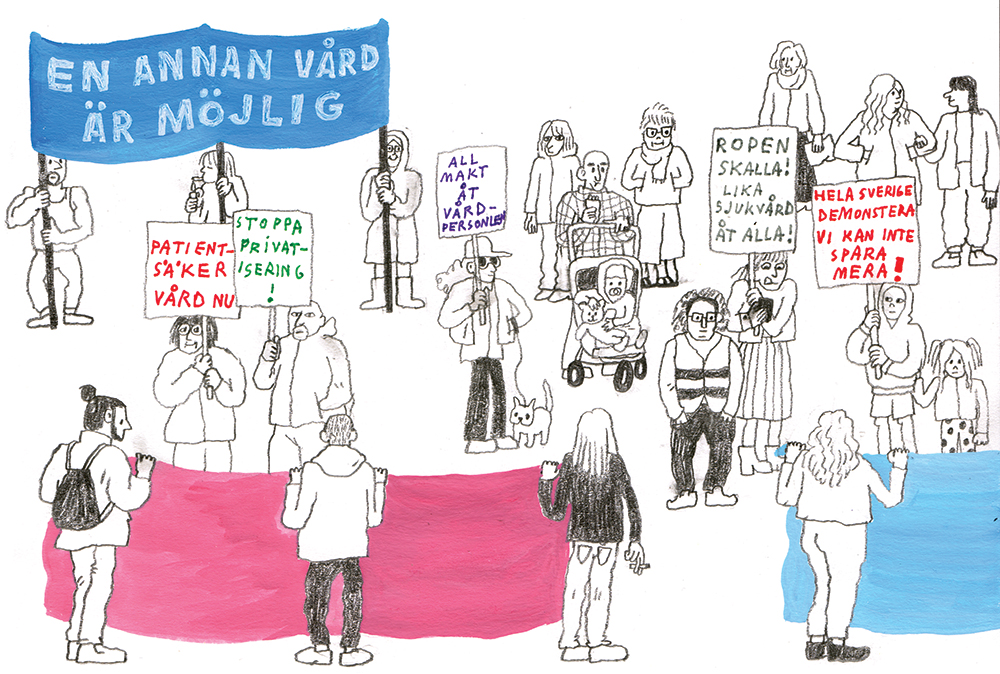 EN ANNAN VÅRD
ÄR MÖJLIG
ALL
MAKT
ÅT
VÅRD-
PERSONLEN
ROPEN
SKALLA!
LIKA
SJUKVÅRD
ÅT ALLA!
HELA SVERIGE
DEMONSTERA
VI KAN INTE
SPARA
MERA!
PATIENT-
SÄKER
VÅRD NU
STOPPA
PRIVAT-
ISERING
!